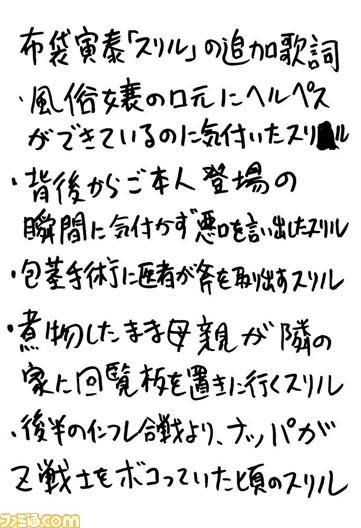 布袋寅泰「スリル」の追加歌詞
・風俗嬢の口元にヘルペス
ができているのに気付いたスリル
・背後からご本人登場の
瞬間に気付かず悪口を言い出したスリル
・包茎手術に医者が斧を取出すスリル
・煮物したまま母親が隣の
家に回覧板を置きに行くスリル
・後半のインフレ合戦より、ナッパが
Z戦士をボコっていた頃のスリル
ファミ通.com